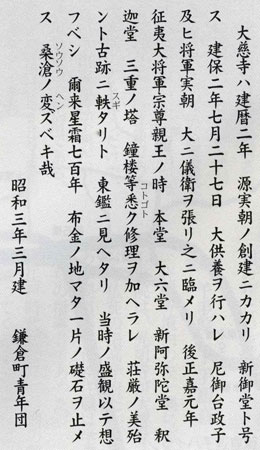 大慈寺ハ建暦二年 源実朝ノ創建ニカカリ 新御堂ト号
ス 建保二年七月二十七日 大供養ヲ行ハレ 尼御台政子
及ヒ将軍実朝 大ニ儀衛ヲ張リ之ニ臨メリ 後正嘉元年
征夷大将軍宗尊親王ノ時 本堂 大六堂 新阿弥陀堂 釈
迦堂 三重ノ塔 鐘楼等悉ク修理ヲ加ヘラレ 荘厳ノ美殆
コトゴト
ント古跡ニ軼タリト 東鑑ニ見ヘタリ 当時ノ盛観以テ想
スギ
フベシ 爾来星霜七百年 布金ノ地マタ一片ノ礎石ヲ止メ
ス 桑滄ノ変ズベキ哉
ソウソウ ヘン
昭和三年三月建 鎌倉町青年団